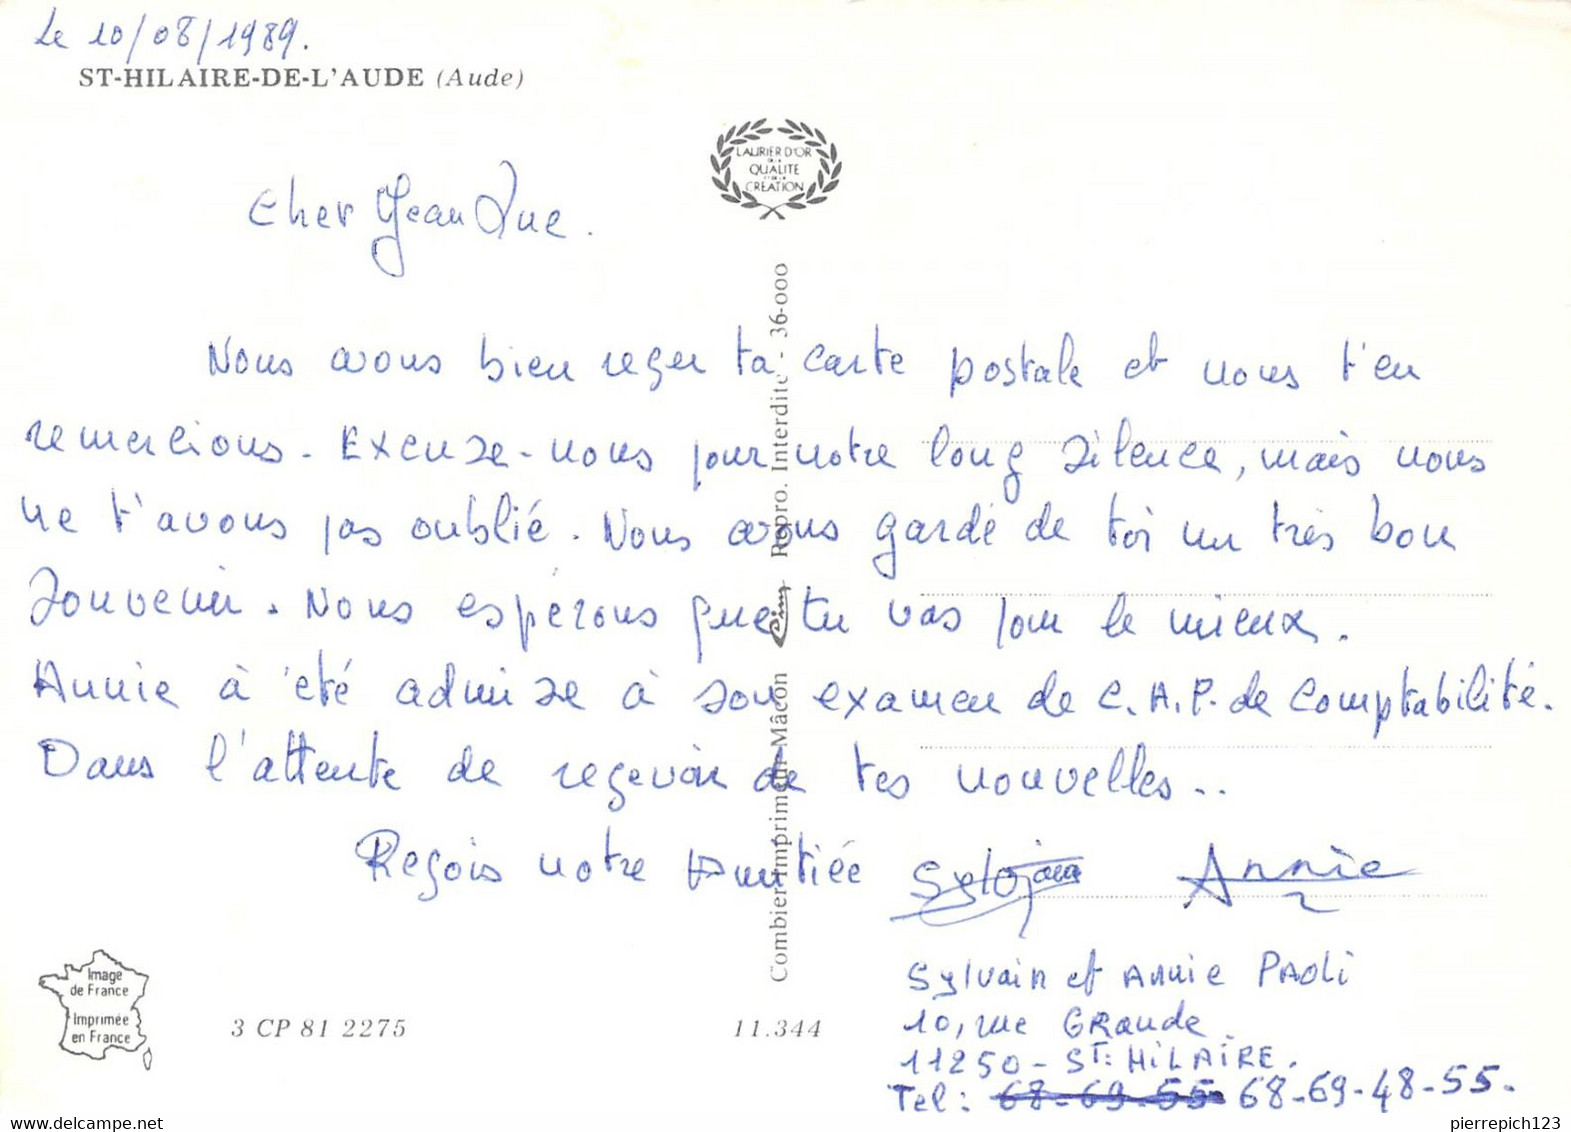 Le 10/08/1989.
ST-HILAIRE-DE-L'AUDE (Aude)
LAURIER D'OR
DE LA
QUALITE
ET DE LA
CREATION
Cher Jean Luc.
Nous avons bien reçu ta carte postale et nous t'en
remercions. Excuse-nous pour notre long silence, mais nous
ne t'avons pas oublié. Nous avons gardé de toi un très bon
souvenir. Nous espérons que tu vas pour le mieux.
Annie à été admise à son examen de C.A.P. de Comptabilité.
Dans l'attente de reçevoir de tes nouvelles..
Reçois notre Amitiée Sylvain Annie
Combier Imprimeur Mâcon Cim Repro. Interdite - 36-000
Sylvain et Annie PAOLI
10, rue GRande
11250 - ST: HiLAiRE.
Tel: 68-69-55 68-69-48-55.
Image
de France
Imprimée
en France
3 CP 81 2275
11.344
myfavorites.delcampe.net
pierrepich123